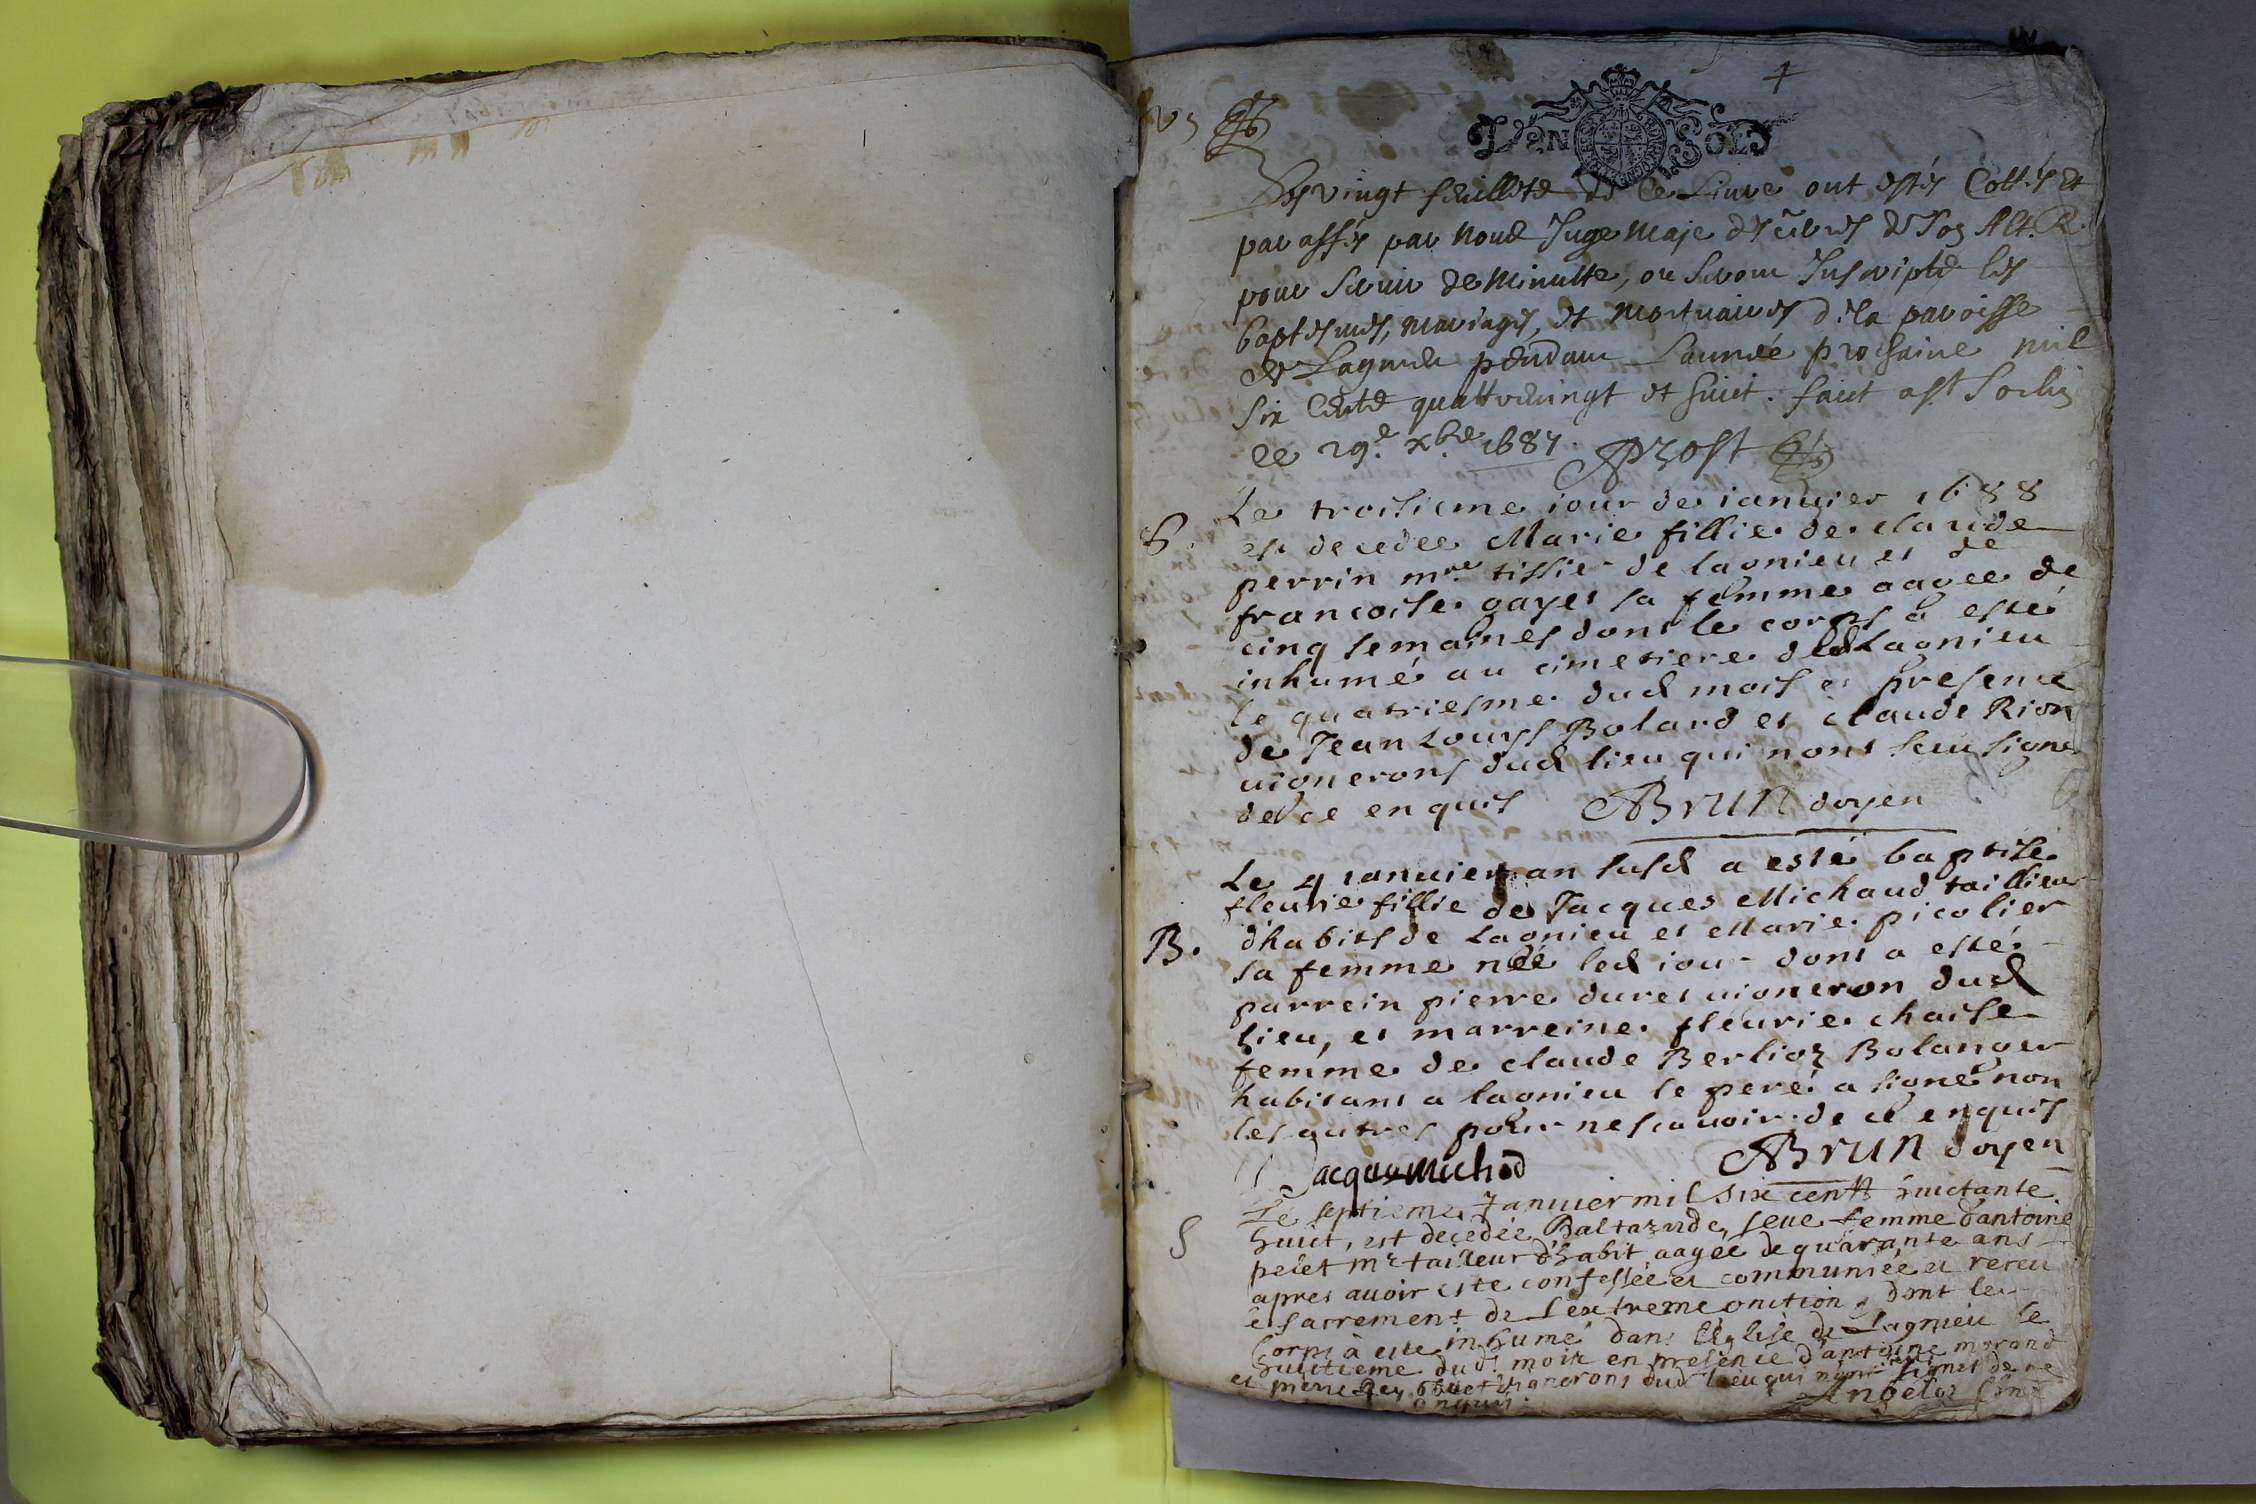 1
DEN SOLS
Les vingt feuillets de ce Liure ont estés Cottés et
parassés par Nous Juge Maje des de Son Alt. R.
pour seruir de Minutte, ou seront Inscripts les
baptesmes, mariages, et mortuaires de la paroisse
de Lagnieu pendant Lannée prochaine mil
six Cents quattreuingt et huict. faict a St Sorlin
le 29.e xbre 1687. Prost
Le troisieme iour de ianuier 1688
S. est decedee Marie fillie de claude
perrin mre tissier de lagnieu et de
francoise gayet sa femme aagee de
cinq semaines dont le corps a esté
inhumé au cimetiere dud Lagnieu
le quatriesme dud mois et presence
de Jean Louys Bolard et claude Rion
uignerons dud lieu qui nont sceu signe
de ce enquis ABrun doyen
Le 4 ianuier an susd a esté baptise
fleurie fillie de Jacques Michaud taillieur
B. d'habits de Lagnieu et Marie picolier
sa femme née led iour dont a esté
parrein pierre duret uigneron dud
lieu, et marreine fleurie chaise
femme de claude Berlioz Bolanger
habitant a lagnieu le pere a signé non
les autres pour ne scauoir de ce enquis
Jacque Michod ABrun doyen
Le septieme Januier mil six cents huictante
S huict, est decedée Baltazarde, seue femme d'antoine
peiet mr tailleur d'habit aagée de quarante ans
apres auoir este confessée et communiée et receu
le sacrement de l'extreme onction, dont le
Corps à este inhumé dans l'Eglise de Lagnieu le
huictieme dud. mois en presence d'antoine morand
et pierre Rey uignerons dud lieu qui n'ont signés de ce
enquis.